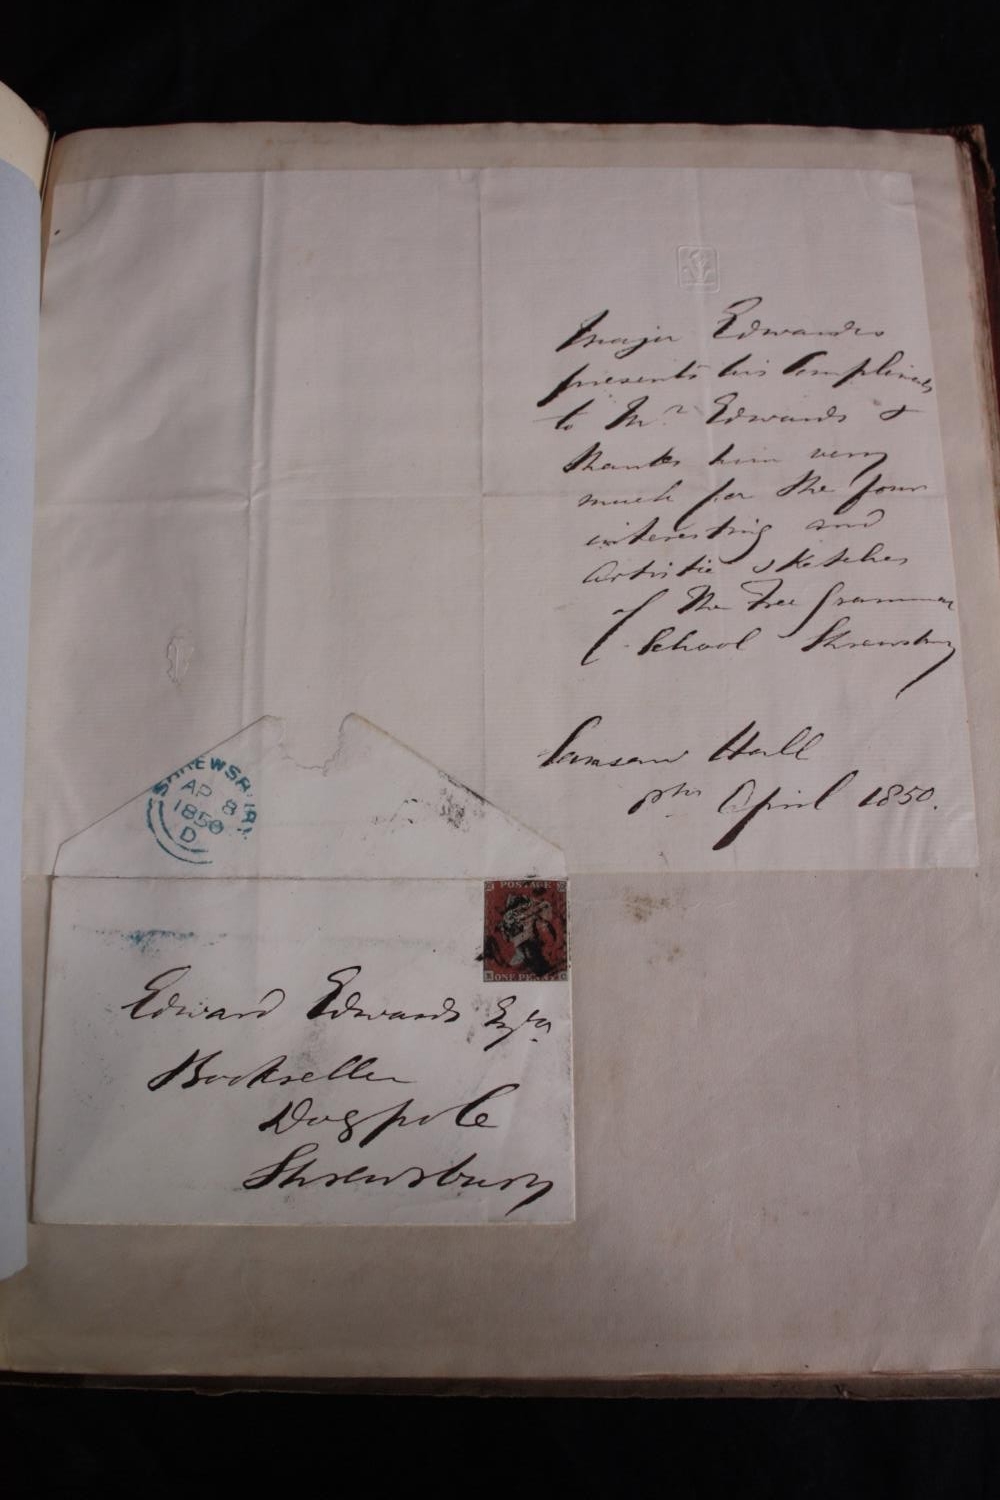 Major Edwardes
presents his Compliments
to Mr. Edwards &
thanks him very
much for the four
interesting and
Artistic sketches
of the Free Grammar
School Shrewsbury
Hall
April 1850.
SHREWSBURY
AP 8
1850
D
POSTAGE
ONE PENNY
Edward Edwards Esqre
Bookseller
Dogpole
Shrewsbury